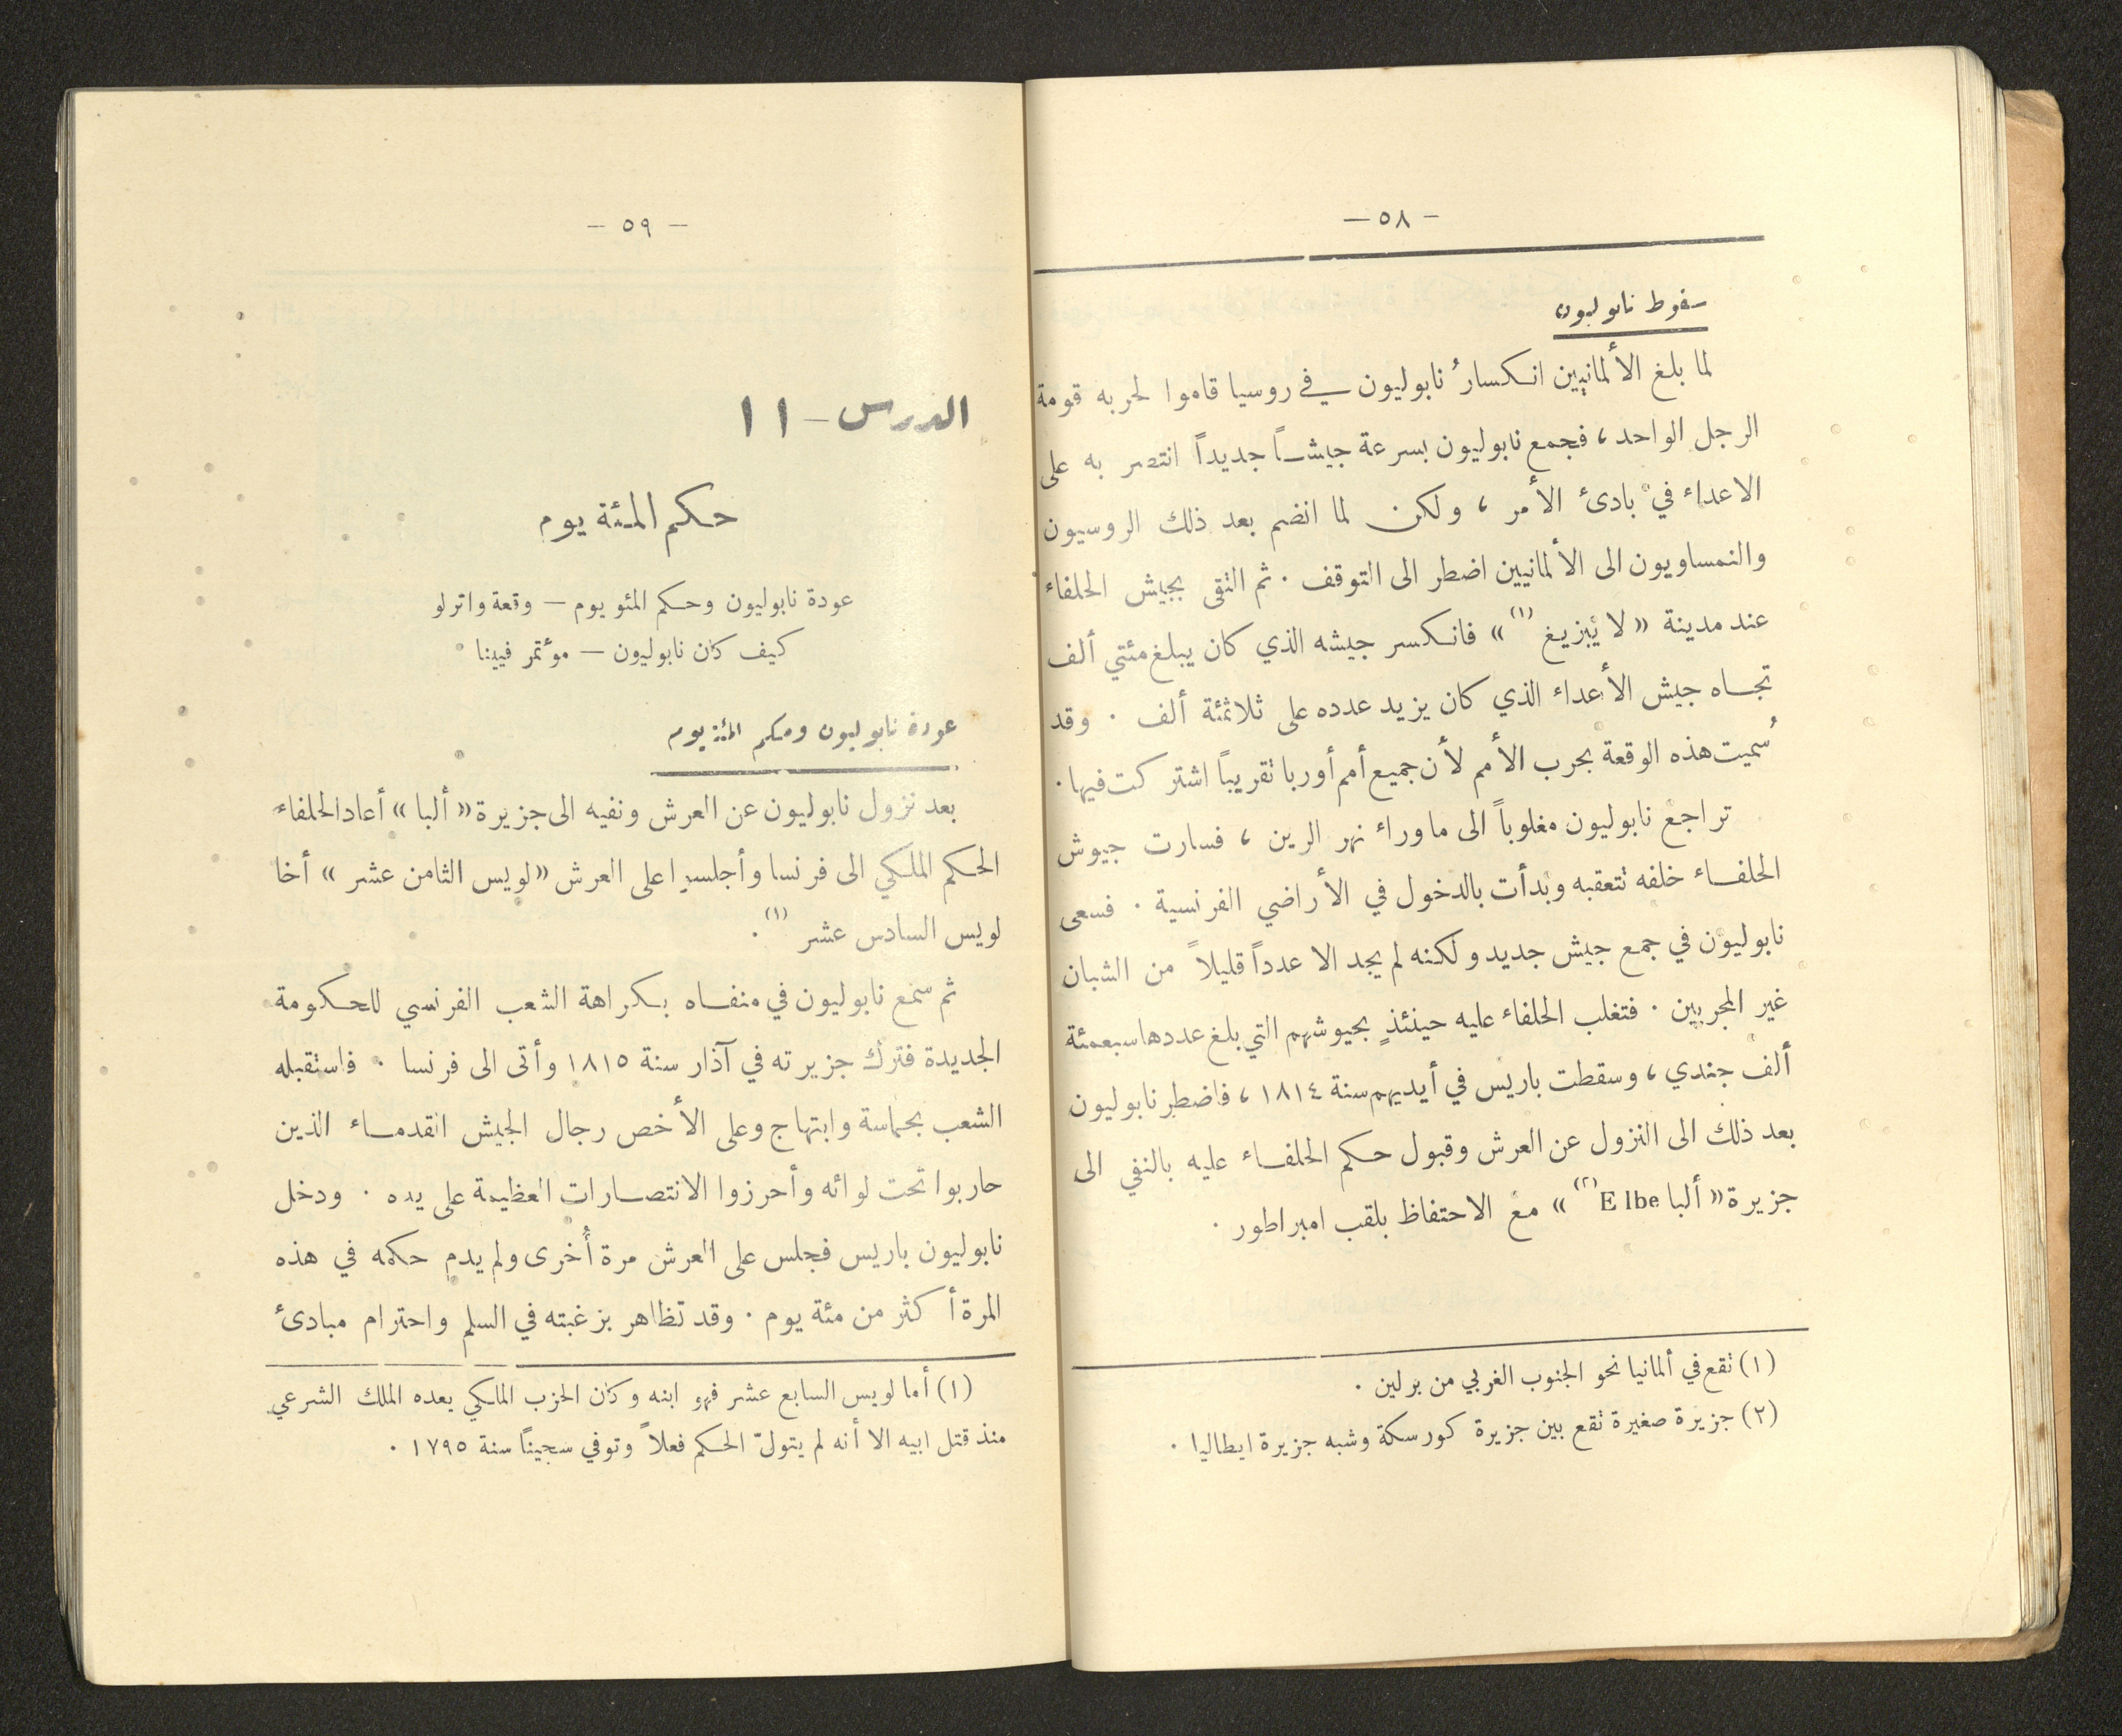 — ٥٨ —
سقوط نابوليون
لما بلغ الألمانيين انكسارُ نابوليون في روسيا قاموا لحربه قومة
الرجل الواحد، فجمع نابوليون بسرعة جيشاً جديداً انتصر به على
الاعداء في بادئ الأمر، ولكن لما انضم بعد ذلك الروسيون
والنمساويون الى الألمانيين اضطر الى التوقف. ثم التقى بجيش الحلفاء
عند مدينة «لا يْبزيغ (١)» فانكسر جيشه الذي كان يبلغ مئتي ألف
تجاه جيش الأعداء الذي كان يزيد عدده على ثلاثمئة ألف. وقد
سُميت هذه الوقعة بحرب الأمم لأن جميع أمم أوربا تقريباً اشتركت فيها.
تراجع نابوليون مغلوباً الى ما وراء نهر الرين، فسارت جيوش
الحلفاء خلفه تتعقبه وبدأت بالدخول في الأراضي الفرنسية. فسعى
نابوليون في جمع جيش جديد ولكنه لم يجد الا عدداً قليلاً من الشبان
غير المجربين. فتغلب الحلفاء عليه حينئذٍ بجيوشهم التي بلغ عددها سبعمئة
ألف جندي، وسقطت باريس في أيديهم سنة ١٨١٤، فاضطر نابوليون
بعد ذلك الى النزول عن العرش وقبول حكم الحلفاء عليه بالنفي الى
جزيرة «ألبا Elbe (٢)» مع الاحتفاظ بلقب امبراطور.
(١) تقع في ألمانيا نحو الجنوب الغربي من برلين.
(٢) جزيرة صغيرة تقع بين جزيرة كورسكة وشبه جزيرة ايطاليا.
— ٥٩ —
الدرس – ١١
حكم المئة يوم
عودة نابوليون وحكم المئو يوم — وقعة واترلو
كيف كان نابوليون — مؤتمر فيينا
عودة نابوليون وحكم المئة يوم
بعد نزول نابوليون عن العرش ونفيه الى جزيرة «ألبا» أعاد الحلفاء
الحكم الملكي الى فرنسا وأجلسوا على العرش «لويس الثامن عشر» أخا
لويس السادس عشر (١).
ثم سمع نابوليون في منفاه بكراهة الشعب الفرنسي للحكومة
الجديدة فترك جزيرته في آذار سنة ١٨١٥ وأتى الى فرنسا. فاستقبله
الشعب بحماسة وابتهاج وعلى الأخص رجال الجيش القدماء الذين
حاربوا تحت لوائه وأحرزوا الانتصارات العظيمة على يده. ودخل
نابوليون باريس فجلس على العرش مرة أُخرى ولم يدم حكمه في هذه
المرة أكثر من مئة يوم. وقد تظاهر برغبته في السلم واحترام مبادئ
(١) أما لويس السابع عشر فهو ابنه وكان الحزب الملكي يعده الملك الشرعي
منذ قتل ابيه الا أنه لم يتولّ الحكم فعلاً وتوفي سجيناً سنة ١٧٩٥.